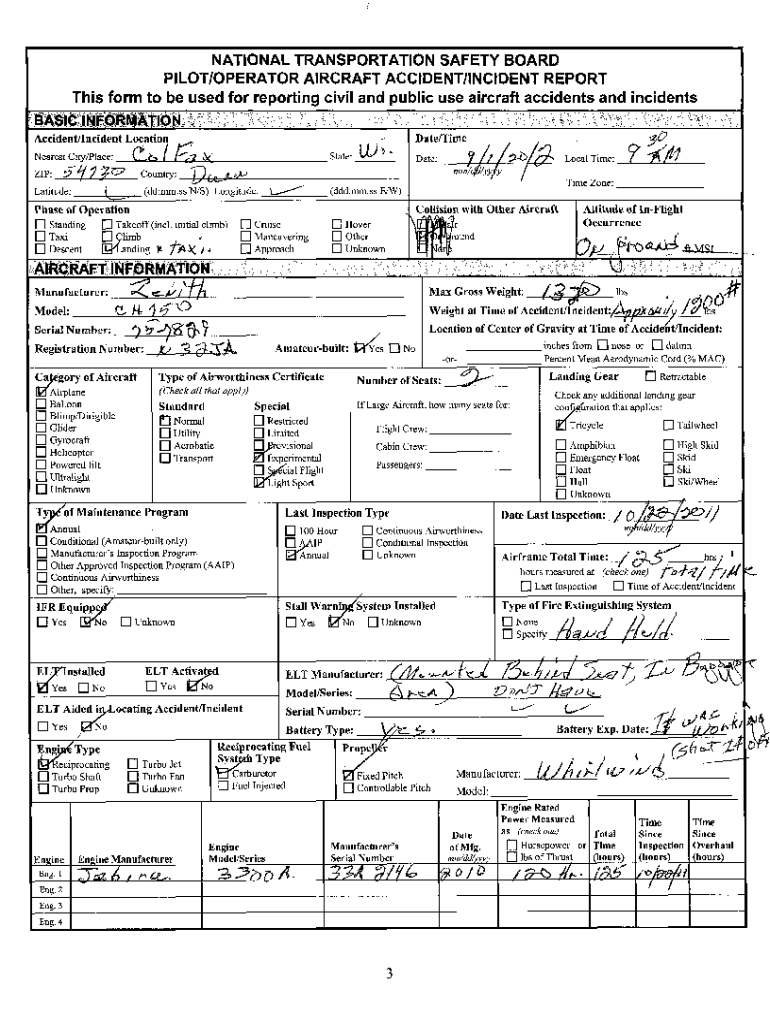 NATIONAL TRANSPORTATION SAFETY BOARD
PILOT/OPERATOR AIRCRAFT ACCIDENT/INCIDENT REPORT
This form to be used for reporting civil and public use aircraft accidents and incidents
BASIC INFORMATION
Accident/Incident Location
Nearest City/Place: Colfax State: Wi.
ZIP: 54730 Country: Dunn
Latitude: (dd:mm:ss N/S) Longitude: (ddd:mm:ss E/W)
Date/Time
Date: 9/1/2012 Local Time: 9 30 AM
mm/dd/yyyy
Time Zone:
Phase of Operation
Standing Takeoff (incl. initial climb) Cruise Hover
Taxi Climb Maneuvering Other
Descent Landing * TAXi.. Approach Unknown
Collision with Other Aircraft
None
Altitude of In-Flight
Occurrence
On Ground ft MSL
AIRCRAFT INFORMATION
Manufacturer: Zenith
Model: CH750
Serial Number: 75-7829
Registration Number: N 325JA Amateur-built: Yes No
Max Gross Weight: 1320 lbs
Weight at Time of Accident/Incident: 1200# lbs
Location of Center of Gravity at Time of Accident/Incident:
inches from nose or datum
-or- Percent Mean Aerodynamic Cord (% MAC)
Category of Aircraft
Airplane
Balloon
Blimp/Dirigible
Glider
Gyrocraft
Helicopter
Powered lift
Ultralight
Unknown
Type of Airworthiness Certificate
(Check all that apply)
Standard Special
Normal Restricted
Utility Limited
Acrobatic Provisional
Transport Experimental
Special Flight
Light Sport
Number of Seats: 2
If Large Aircraft, how many seats for:
Flight Crew:
Cabin Crew:
Passengers:
Landing Gear Retractable
Check any additional landing gear
configuration that applies:
Tricycle Tailwheel
Amphibian High Skid
Emergency Float Skid
Float Ski
Hull Ski/Wheel
Unknown
Type of Maintenance Program
Annual
Conditional (Amateur-built only)
Manufacturer's Inspection Program
Other Approved Inspection Program (AAIP)
Continuous Airworthiness
Other, specify:
Last Inspection Type
100 Hour Continuous Airworthiness
AAIP Conditional Inspection
Annual Unknown
Date Last Inspection: 10/22/2011
mm/dd/yyyy
Airframe Total Time: 125 hrs
hours measured at (check one) Total Time
Last Inspection Time of Accident/Incident
IFR Equipped
Yes No Unknown
Stall Warning System Installed
Yes No Unknown
Type of Fire Extinguishing System
None
Specify Hand Held.
ELT Installed ELT Activated
Yes No Yes No
ELT Aided in Locating Accident/Incident
Yes No
ELT Manufacturer: (Mounted Behind Seat, In Baggage
Model/Series: Area) DONT Have
Serial Number:
Battery Type: Yes. Battery Exp. Date: It WAS WORKING
(Shut It off
Engine Type
Reciprocating Turbo Jet
Turbo Shaft Turbo Fan
Turbo Prop Unknown
Reciprocating Fuel
System Type
Carburetor
Fuel Injected
Propeller
Fixed Pitch
Controllable Pitch
Manufacturer: Whirlwind
Model:
Engine Engine Manufacturer
Engine
Model/Series
Manufacturer's
Serial Number
Date
of Mfg.
mm/dd/yyyy
Engine Rated
Power Measured
as (check one)
Horsepower or
lbs of Thrust
Total
Time
(hours)
Time
Since
Inspection
(hours)
Time
Since
Overhaul
(hours)
Eng. 1 Jabiru. 3300A. 33A 2146 2010 120 Hr. 125
Eng. 2
Eng. 3
Eng. 4
3